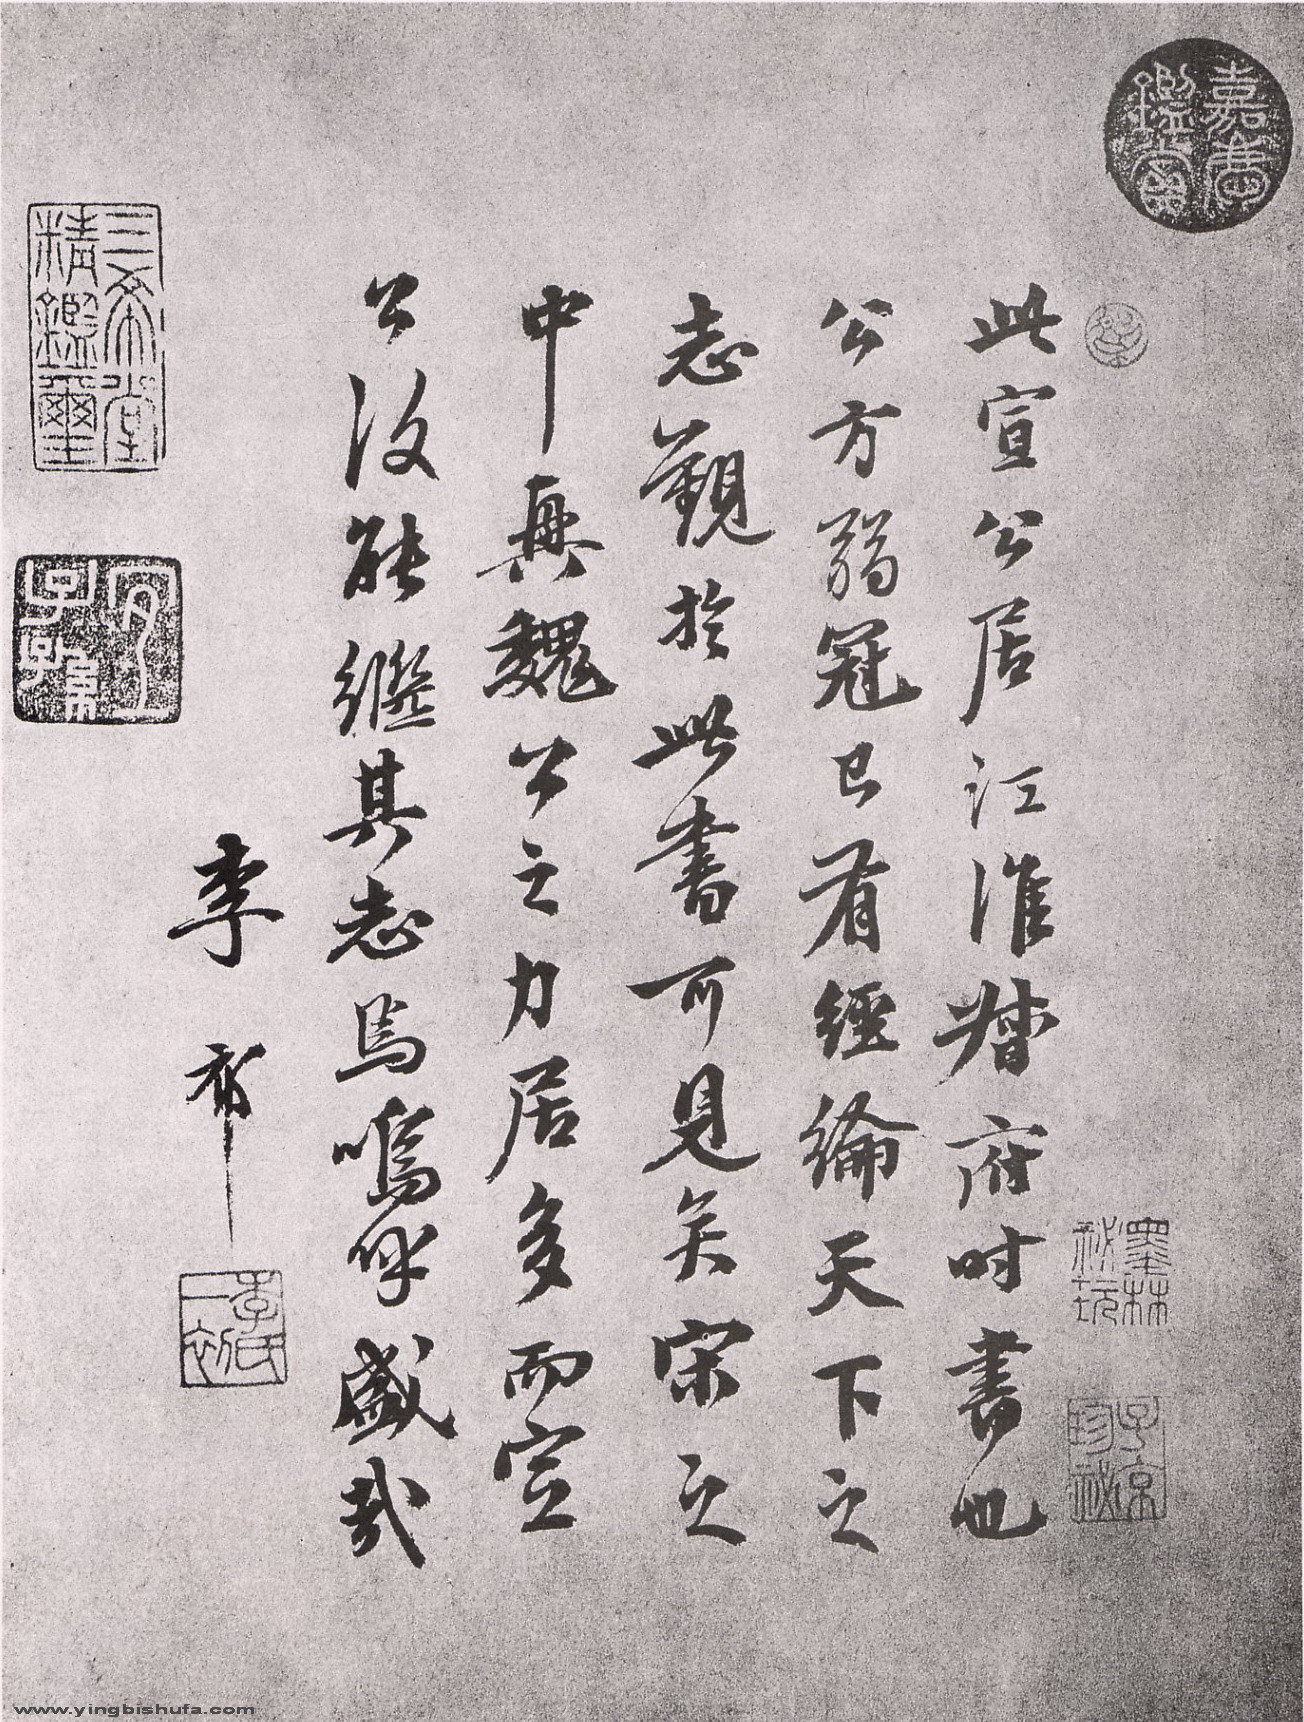 嘉慶鑑賞
此宣公居江淮督府時書也
公方弱冠已有經綸天下之
志觀於此書可見矣宋之
中興魏公之力居多而宣
公復能繼其志焉嗚呼盛哉
李祁
墨林祕玩
子京珍祕
李氏一初
三希堂精鑑璽
宜子孫
www.yingbishufa.com